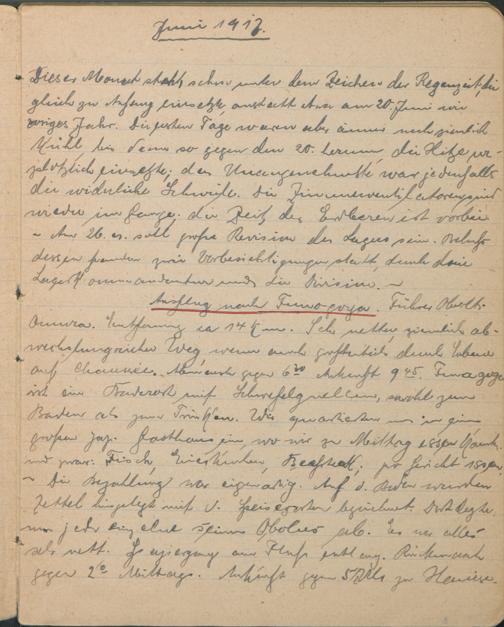 Juni 1917.
Dieser Monat steht schon unter dem Zeichen der Regenzeit, die
gleich zu Anfang einsetzte anstatt etwa am 20 Juni wie
voriges Jahr. Die ersten Tage waren aber immer noch ziemlich
kühl bis dann so gegen den 20. herum, die Hitze
plötzlich einsetzte; das Unangenehmste war jedenfalls
die widerliche Schwüle. Die Zimmerventilatoren sind
wieder im Gange. die Zeit der Erdbeeren ist vorbei
– Am 26. es. soll große Revision des Lagers sein. Behufs
dessen fanden zwei Vorbesichtigungen statt, durch die
Lagerkommandantur und die Division. –
Ausflug nach Funagoya. Führer Oblt.
Omura. Entfernung ca 14 Km. Sehr netter, ziemlich ab-
wechslungsreicher Weg wenn auch größtenteils durch
auf Chaussee. Abmarsch gegen 6³⁰ Ankunft 9⁴⁵. Funagoya
ist ein Badeort mit Schwefelquellen, sowohl zum
Baden als zum Trinken. Wir quartierten uns in einem
großen jap. Gasthaus ein, wo wir zu Mittag essen
und zwar: Fisch, Eierkuchen, Beafsteak; pro Gericht
– Die Bezahlung war eigenartig. Auf d. Boden wurden
Zettel hingelegt mit d. Speisesorten bezeichnet. Dort legte
nun jeder einzelne seinen Obolus ab. Es war alles
sehr nett. Spaziergang am Fluß entlang. Rückmarsch
gegen 2⁰⁰ Mittags. Ankunft gegen 5 Uhr zu Hause.